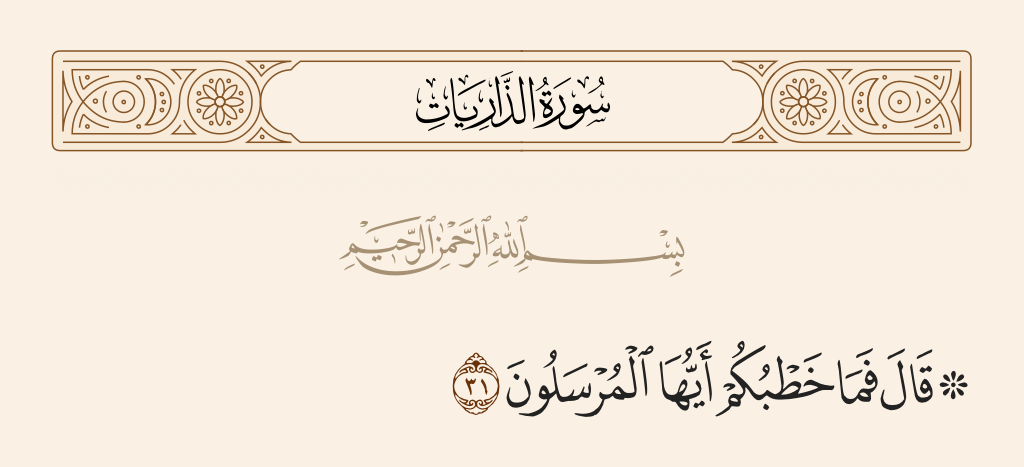 سُورَةُ الذَّارِيَاتِ
بِسْمِ ٱللَّهِ ٱلرَّحْمَٰنِ ٱلرَّحِيمِ
۞ قَالَ فَمَا خَطْبُكُمْ أَيُّهَا ٱلْمُرْسَلُونَ ٣١